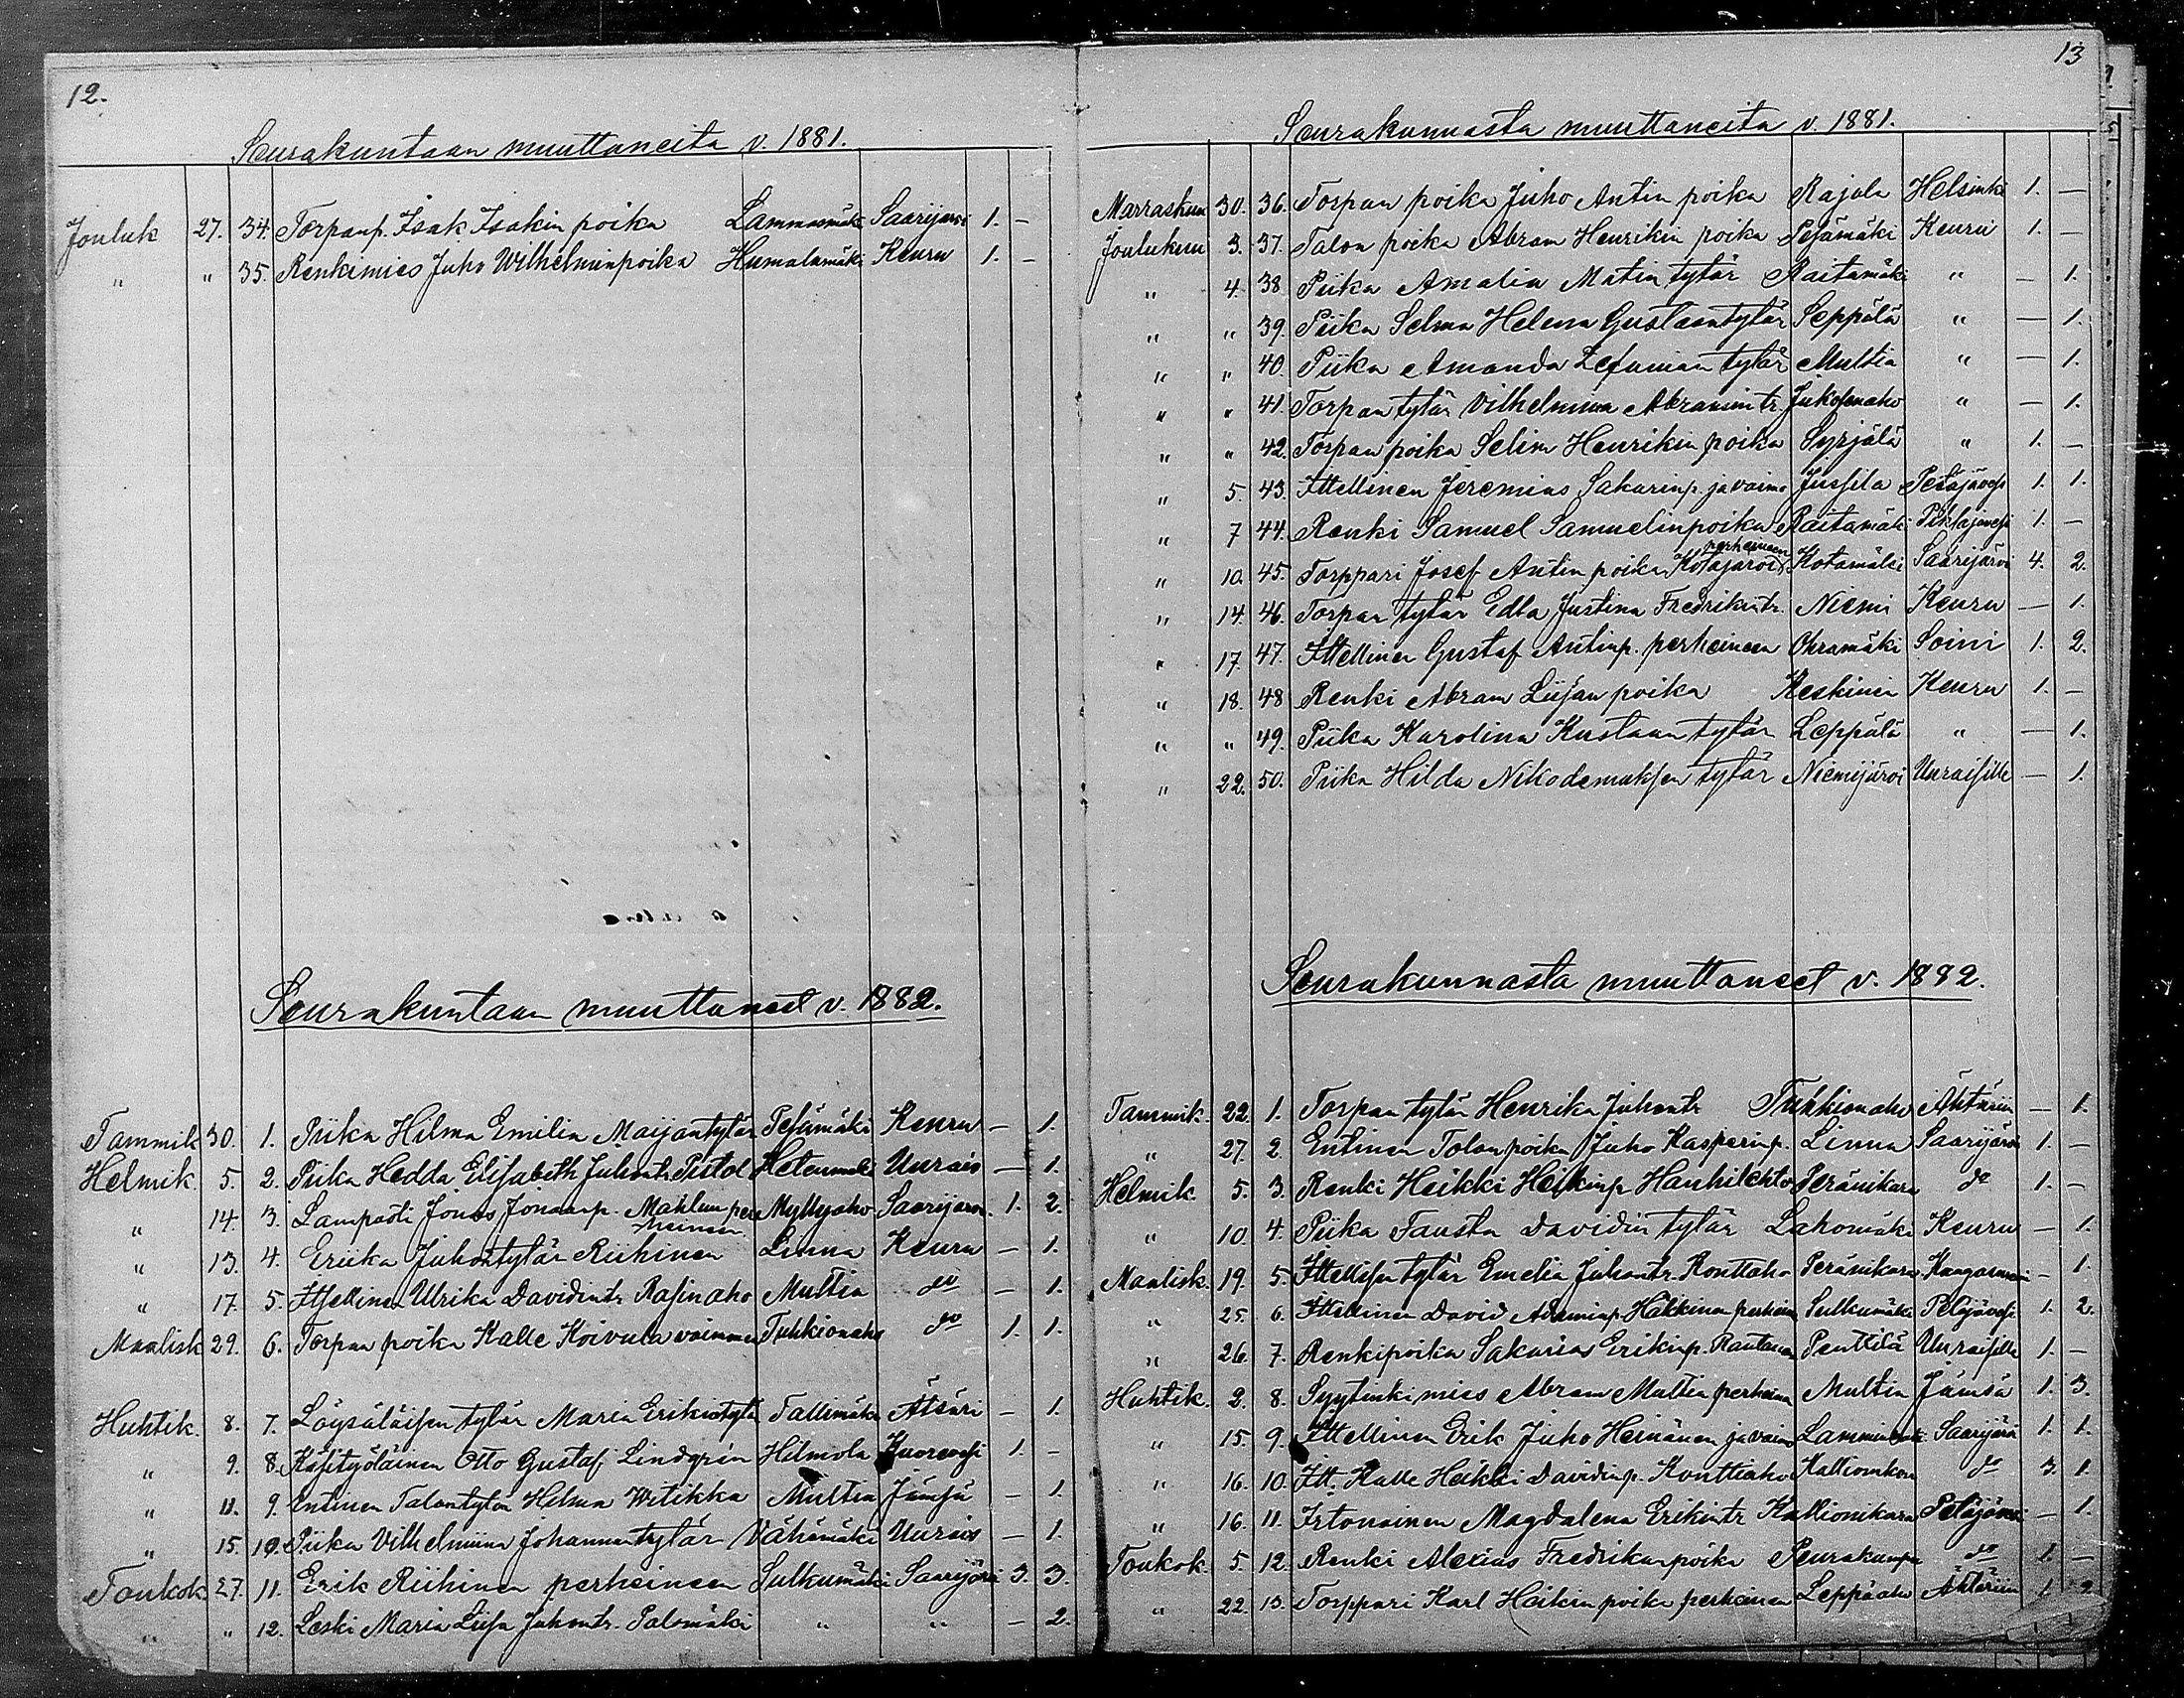 12.
Seurakuntaan muuttaneita v. 1881.
Jouluk 27. 34. Torpanp. Isak Isakin poika Lammasmäki Saarijärvi 1. –
" " 35. Renkimies Juho Wilhelminpoika Humalamäki Keuru 1. –
Seurakuntaan muuttaneet v. 1882.
Tammik 30. 1. Piika Hilma Emilia Maijantytär Petämäki Keuru – 1.
Helmik. 5. 2. Piika Hedda Elisabeth Juhontr. Pistol Uurais – 1.
" 14. 3. Lampuoti Jonas Jonaanp. Mahlum per Myllyaho Saarijärvi 1. 2.
heineen
" 13. 4. Eriika Juhontytär Riihinen Linna Keuru – 1.
" 17. 5. Itsellinen Ulrika Davidintr. Rasinaho Multia do – 1.
Maalisk 29. 6. Torpan poika Kalle Koivula vaimoneen Tuhkionaho do 1. 1.
Huhtik. 8. 7. Löysäläisen tytär Maria Erikintytär Tallimäki Ätsäri – 1.
" 9. 8. Käsityöläinen Otto Gustaf Lindgrén Hilmola Kuorevesi 1. –
" 11. 9. Entinen Talontytär Helma Witikka Multia Jämsä – 1.
" 15. 10. Piika Vilhelmiina Johannantytär Vähämäki Uurais – 1.
Toukok. 27. 11. Erik Riihinen perheineen Sulkumäki Saarijärvi 3. 3.
" " 12. Leski Maria Liisa Juhontr. Palomäki " " – 2.
13
Seurakunnasta muuttaneita v. 1881.
Marraskuu 30. 36. Torpan poika Juho Antin poika Rajala Helsinki 1. –
Joulukuu 3. 37. Talon poika Abram Henrikin poika Pejämäki Keuru 1. –
" 4. 38 Piika Amalia Matin tytär Raitamäki " – 1.
" " 39. Piika Selma Helena Gustaantytär Seppälä " – 1.
" " 40. Piika Amanda Zefanian tytär Multia " – 1.
" " 41. Torpan tytär Vilhelmiina Abramintr. Jukosenaho " – 1.
" " 42. Torpan poika Selim Henrikin poika Syrjälä " 1. –
" 5. 43. Itsellinen Jeremias Sakarinp. ja vaimo Jussila Petäjävesi 1. 1.
" 7 44. Renki Samuel Samuelinpoika Raitamäki Pihlajavesi 1. –
perheineen
" 10. 45. Torppari Josef Antin poika Kotajärvi Kotamäki Saarijärvi 4. 2.
" 14. 46. Torpan tytär Edla Justina Fredrikintr. Niemi Keuru – 1.
" 17. 47. Itsellinen Gustaf Antinp. perheineen Ohramäki Soini 1. 2.
" 18. 48 Renki Abram Liisan poika Keskinen Keuru 1. –
" " 49. Piika Karolina Kustaan tytär Leppälä " – 1.
" 22. 50. Piika Hilda Nikodemuksen tytär Niemijärvi Uuraisille – 1.
Seurakunnasta muuttaneet v. 1882.
Tammik. 22. 1. Torpan tytär Henrika Juhontr. Tuhkionaho Ähtäriin – 1.
" 27. 2. Entinen Talonpoika Juho Kasperinp. Linna Saarijärvi 1. –
Helmik 5. 3. Renki Heikki Heikinp. Hauhilehto Peränikara do 1. –
" 10. 4. Piika Fausta Davidin tytär Lahomäki Keuru – 1.
Maalisk. 19. 5. Itsellisen tytär Emelia Juhontr. Konttaho Peränikara Kangasniemi – 1.
" 25. 6. Itsellinen David Adaminp. Häkkinen perheineen Sulkumäki Petäjävesi 1. 2.
" 26. 7. Renkipoika Sakarias Erikinp. Rautanen Penttilä Uuraisille 1. –
Huhtik. 2. 8. Syytinkimies Abram Multia perheineen Multia Jämsä 1. 3.
" 15. 9. Itsellinen Erik Juho Heinänen ja vaimo Saarijärvi 1. 1.
" 16. 10. Its. Kalle Heikki Davidinp. Konttiaho Kallionikara do 3. 1.
" 16. 11. Irtonainen Magdalena Erikintr. Kallionikara Petäjävesi – 1.
Toukok. 5. 12. Renki Alexius Fredrikanpoika Peurakumpu do 1. –
" 22. 13. Torppari Karl Heikin poika perheineen Leppäaho Ähtäriin 1. 2.